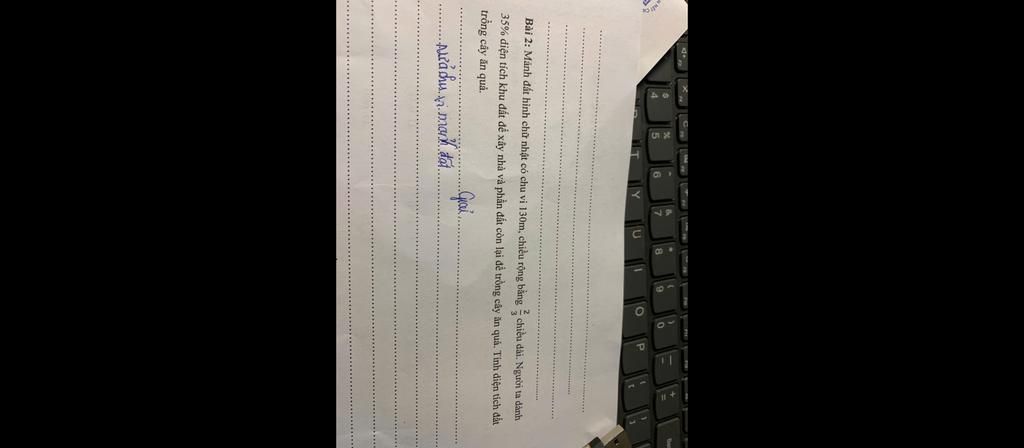 Bài 2: Mảnh đất hình chữ nhật có chu vi 130m, chiều rộng bằng 2/3 chiều dài. Người ta dành
35% diện tích khu đất để xây nhà và phần đất còn lại để trồng cây ăn quả. Tính diện tích đất
trồng cây ăn quả.
Giải
Nửa chu vi mảnh đất
$ % ^ & * ( ) _ +
4 5 6 7 8 9 0 - =
T Y U I O P